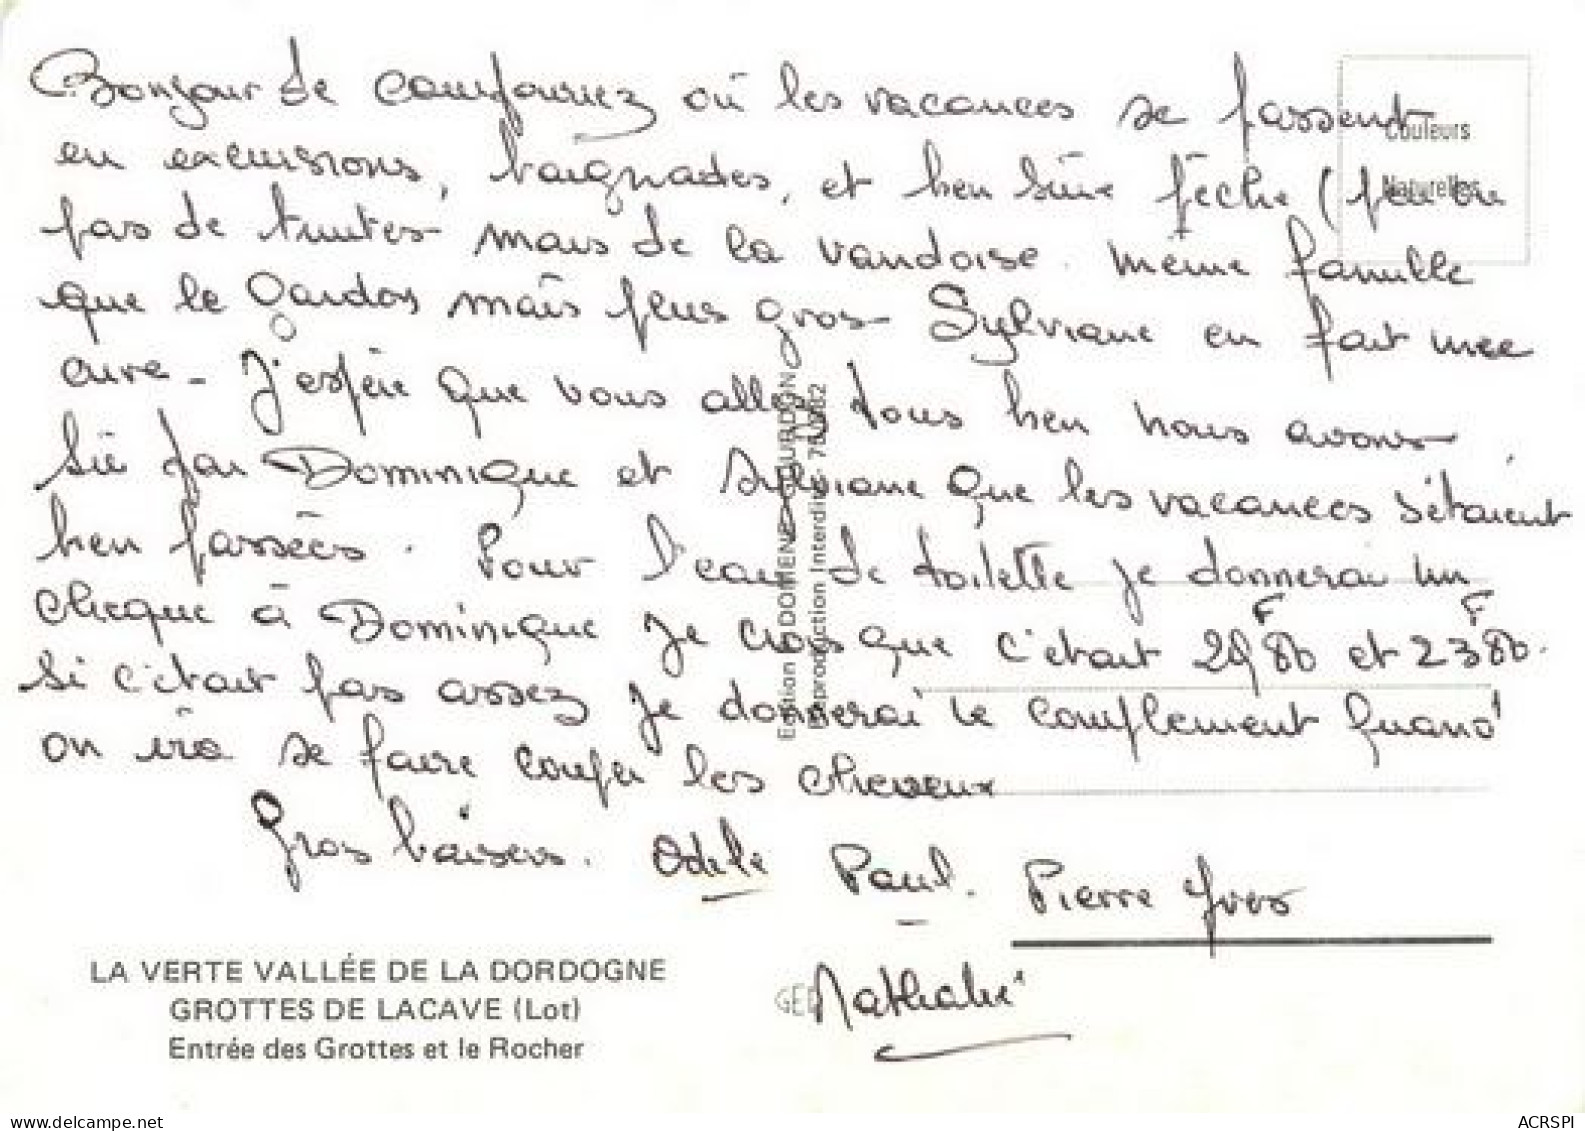 Bonjour de Camfourniez où les vacances se passent
en excursions, baignades, et bien sûre pêche (peu ou
pas de truites mais de la vandoise. même famille
que le gardon mais plus gros Sylviane en fait mee
cuire - J'espère que vous allez tous bien nous avons
sû par Dominique et Sylviane que les vacances s'étaient
bien passées. Pour l'eau de toilette je donnerai un
chèque à Dominique je crois que c'était 29F80 et 23F80.
si c'était pas assez je donnerai le complement quand
on ira se faire couper les cheveux
Gros baisers. Odile Paul. Pierre Yves
Nathalie
Couleurs
Naturelles
Edition DOMENE GOURDON
Reproduction Interdite
LA VERTE VALLÉE DE LA DORDOGNE
GROTTES DE LACAVE (Lot)
Entrée des Grottes et le Rocher
https://www.delcampe.net
ACRSPI